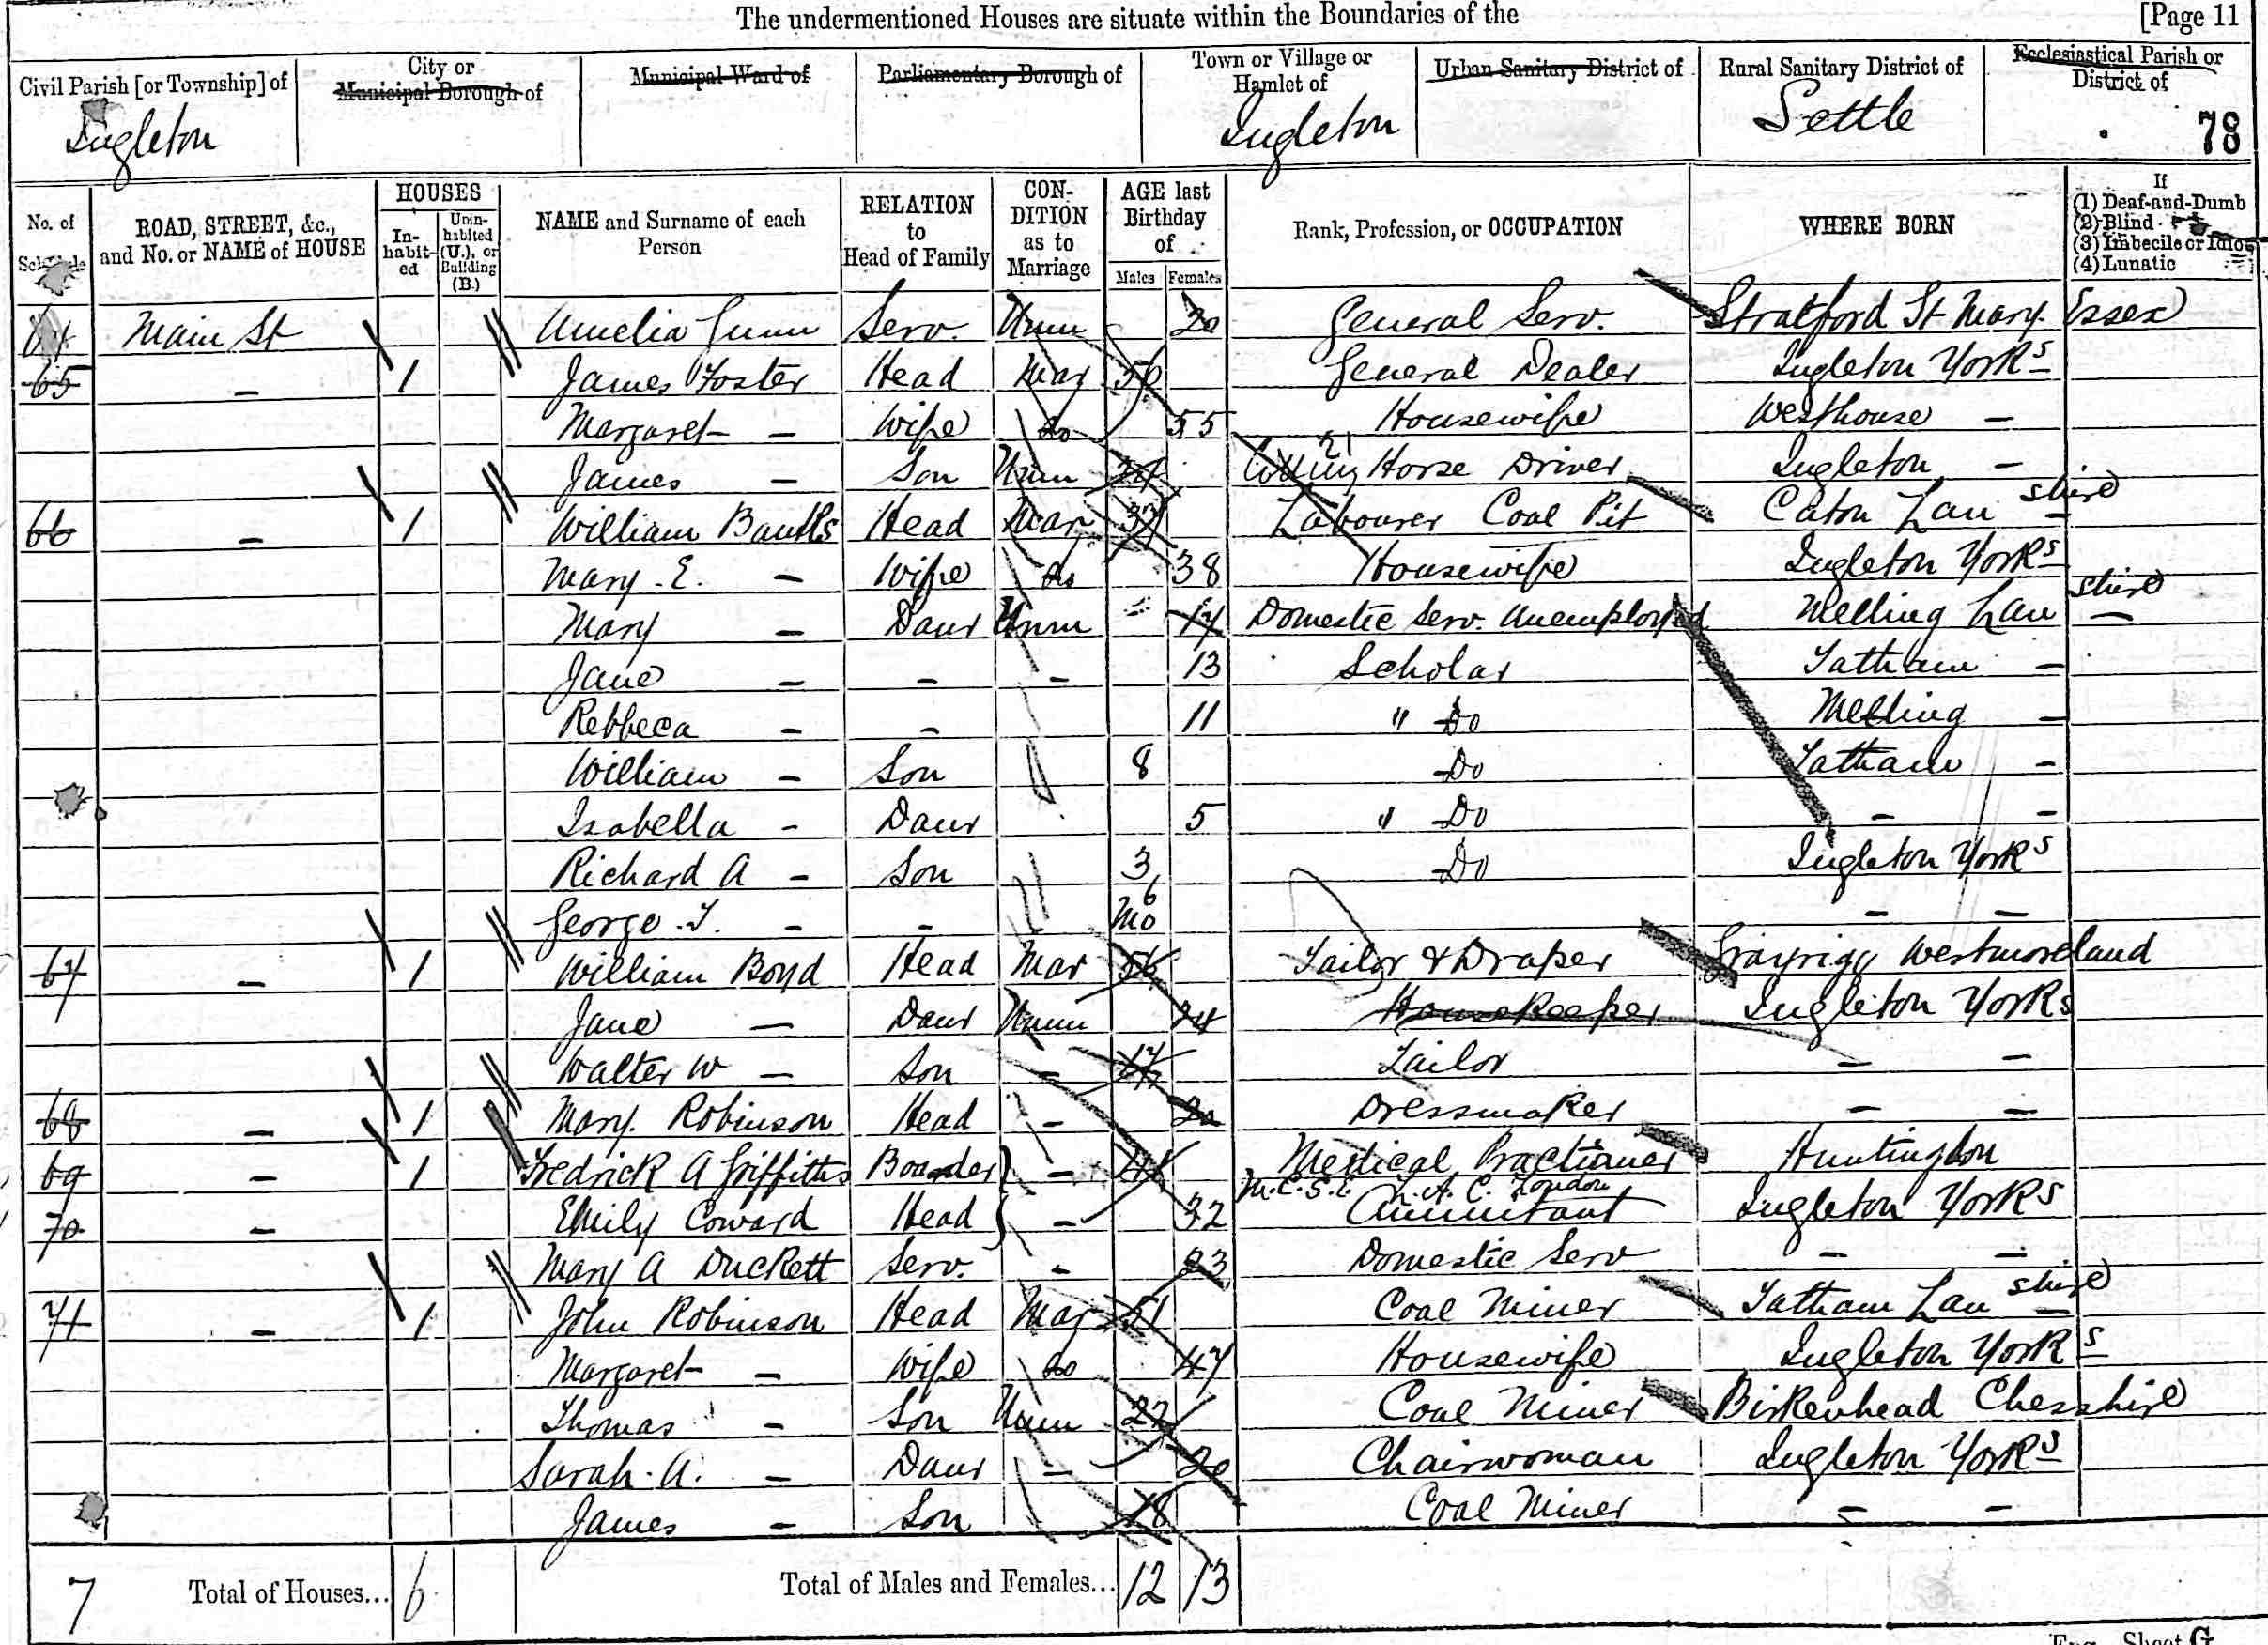 The undermentioned Houses are situate within the Boundaries of the [Page 11
Civil Parish [or Township] of Ingleton
City or Municipal Borough of
Municipal Ward of
Parliamentary Borough of
Town or Village or Hamlet of Ingleton
Urban Sanitary District of
Rural Sanitary District of Settle
Ecclesiastical Parish or District of
78
No. of Schedule
ROAD, STREET, &c., and No. or NAME of HOUSE
HOUSES
Inhabited
Uninhabited (U.), or Building (B.)
NAME and Surname of each Person
RELATION to Head of Family
CONDITION as to Marriage
AGE last Birthday of
Males Females
Rank, Profession, or OCCUPATION
WHERE BORN
If
(1) Deaf-and-Dumb
(2) Blind
(3) Imbecile or Idiot
(4) Lunatic
64 Main St Amelia Gunn Serv. Unm 20 General Serv. Stratford St Mary. Essex
65 — 1 James Foster Head Mar General Dealer Ingleton Yorks
Margaret — Wife do 55 Housewife Westhouse —
James — Son Unm 24 Horse Driver Ingleton —
66 — 1 William Head Mar 37 Labourer Coal Pit Caton Lan shire
Mary. E. — Wife do 38 Housewife Ingleton Yorks
Mary — Daur Unm 17 Domestic Serv. Unemployed Melling Lan shire —
Jane — — — 13 Scholar Tatham —
Rebbeca — — 11 " Do Melling —
William — Son 8 Do Tatham —
Isabella — Daur 5 " Do — —
Richard A — Son 3 Do Ingleton Yorks
George. T. — — 6 Mo — —
67 — 1 William Boyd Head Mar 56 Tailor & Draper Grayrigg Westmoreland
Jane — Daur Unm 24 Housekeeper Ingleton Yorks
Walter W — Son — 17 Tailor — —
68 — 1 Mary. Robinson Head — 20 Dressmaker — —
69 — 1 Fredrick A Griffiths Boarder — 41 Medical Practianer Huntingdon
M.C.S.E. L.A.C. London
70 — Emily Coward Head — 32 Annuitant Ingleton Yorks
Mary A Duckett Serv. — 23 Domestic Serv — —
71 — 1 John Robinson Head Mar 51 Coal Miner Tatham Lan shire
Margaret — Wife do 47 Housewife Ingleton Yorks
Thomas — Son Unm 22 Coal Miner Birkenhead Chesshire
Sarah. A. — Daur — 20 Chairwoman Ingleton Yorks
James — Son 18 Coal Miner — —
7 Total of Houses... 6 Total of Males and Females... 12 13
Eng.—Sheet G.